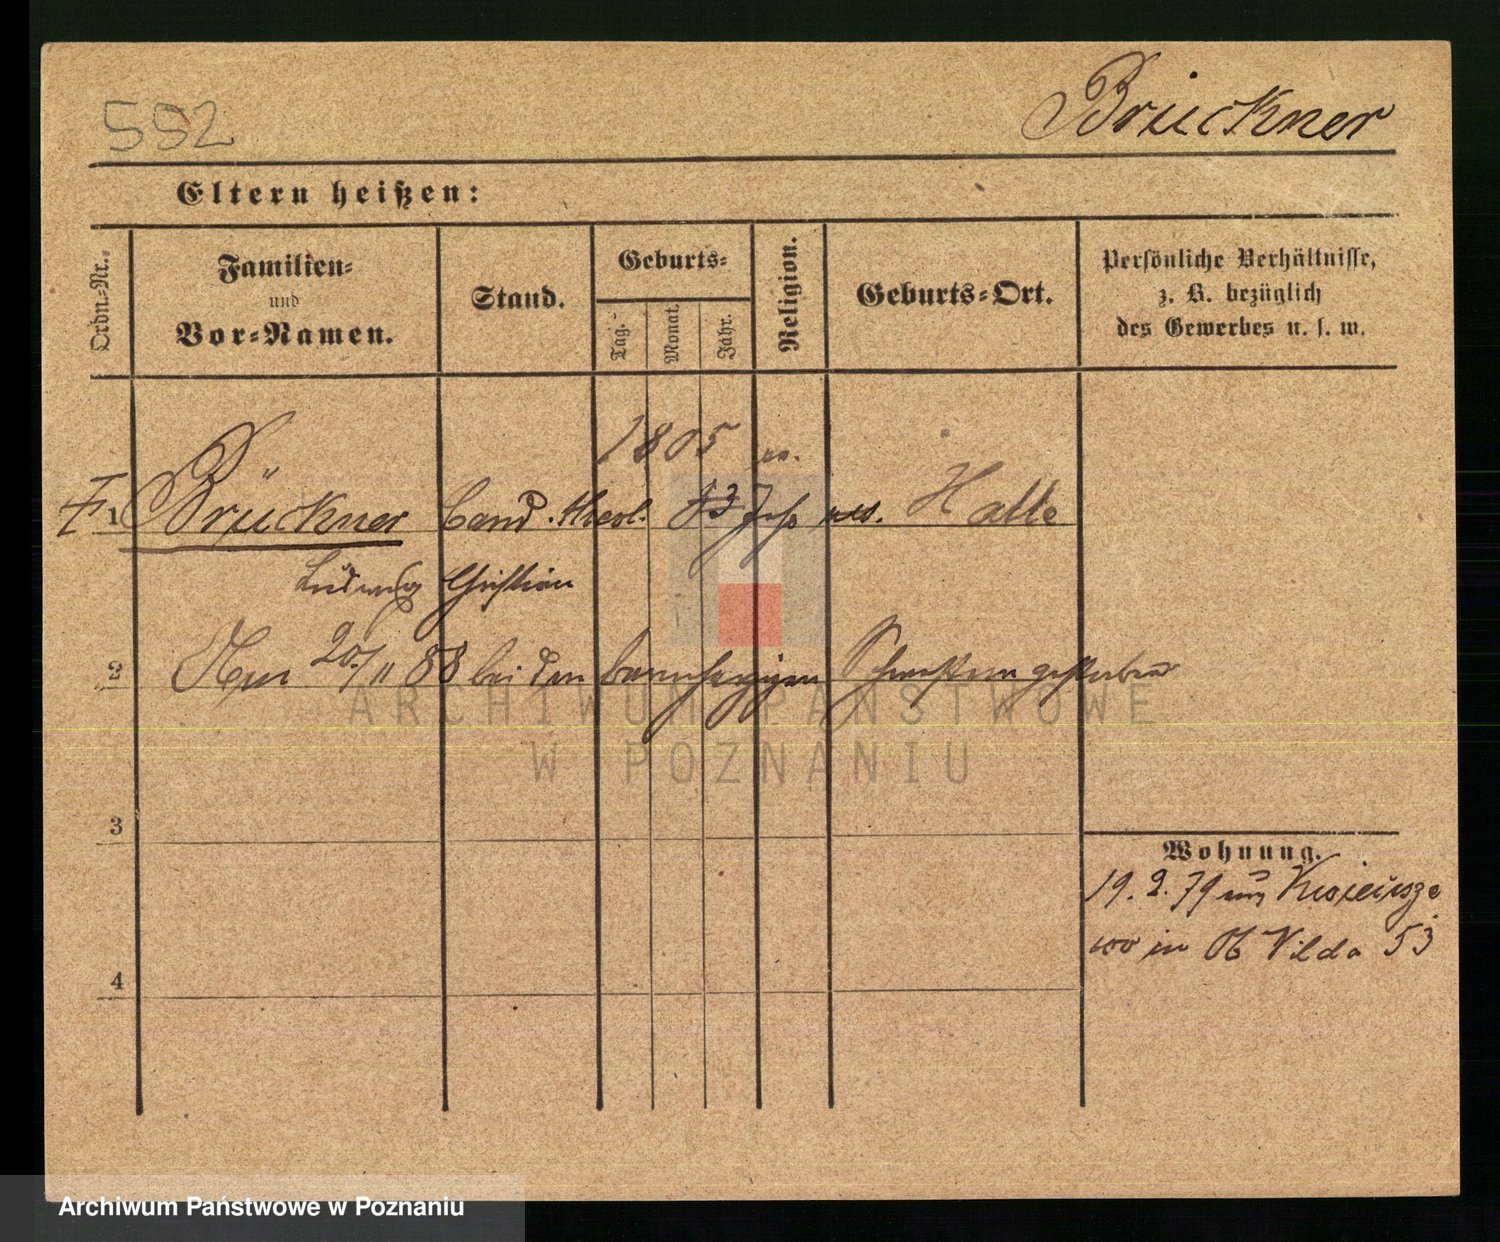 552
Brückner
Eltern heißen:
Ordn.-Nr.
Familien-
und
Vor-Namen.
Stand.
Geburts-
Tag.
Monat.
Jahr.
Religion.
Geburts-Ort.
Persönliche Verhältnisse,
z. B. bezüglich
des Gewerbes u. s. w.
1805
1 Brückner Cand. theol. Halle
Ludwig Christian
2 Am 20/11 88 bei den barmherzigen Schwestern gestorben
ARCHIWUM PAŃSTWOWE
W POZNANIU
3
Wohnung.
19. 2. 79
in Ob Vilda 53
4
Archiwum Państwowe w Poznaniu